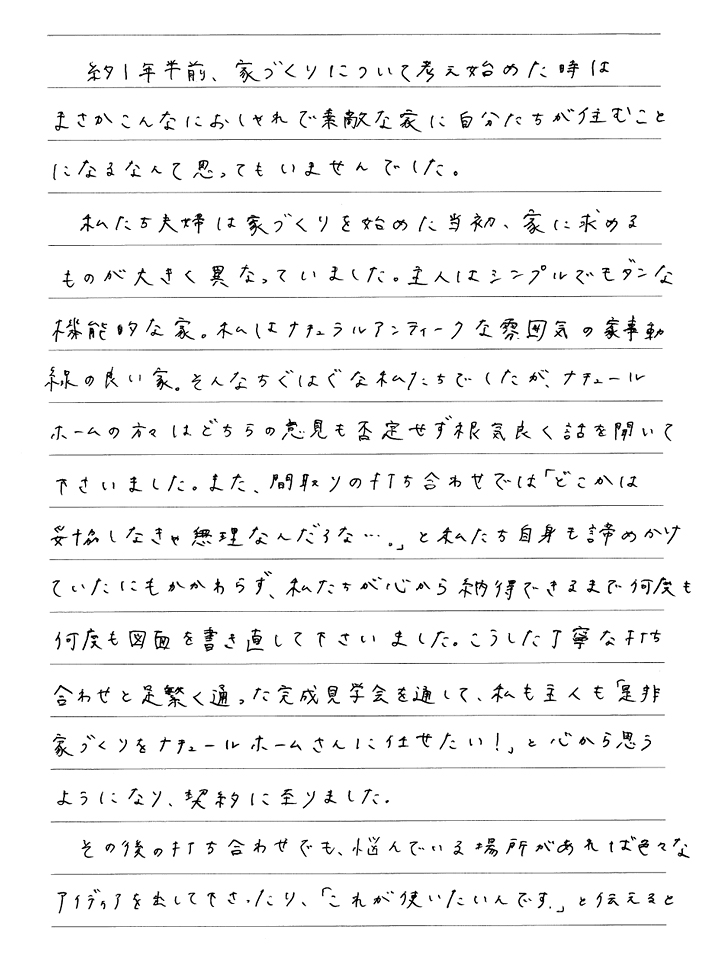 約1年半前、家づくりについて考え始めた時は
まさかこんなにおしゃれで素敵な家に自分たちが住むこと
になるなんて思ってもいませんでした。
私たち夫婦は家づくりを始めた当初、家に求める
ものが大きく異なっていました。主人はシンプルでモダンな
機能的な家。私はナチュラルアンティークな雰囲気の家事動
線の良い家。そんなちぐはぐな私たちでしたが、ナチュール
ホームの方々はどちらの意見も否定せず根気良く話を聞いて
下さいました。また、間取りの打ち合わせでは「どこかは
妥協しなきゃ無理なんだろな…。」と私たち自身も諦めかけ
ていたにもかかわらず、私たちが心から納得できるまで何度も
何度も図面を書き直して下さいました。こうした丁寧な打ち
合わせと足繁く通った完成見学会を通して、私も主人も「是非
家づくりをナチュールホームさんに任せたい!」と心から思う
ようになり、契約に至りました。
その後の打ち合わせでも、悩んでいる場所があれば色々な
アイディアを出して下さったり、「これが使いたいんです。」と伝えると